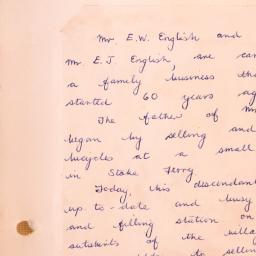 Mr. E.W. English and
Mr. E.J. English, are
a family business
started 60 years
The father of
began by selling and
bicycles at a small
in Stoke Ferry
Today, his
up to-date and busy
and filling station on
outskirts of the
to